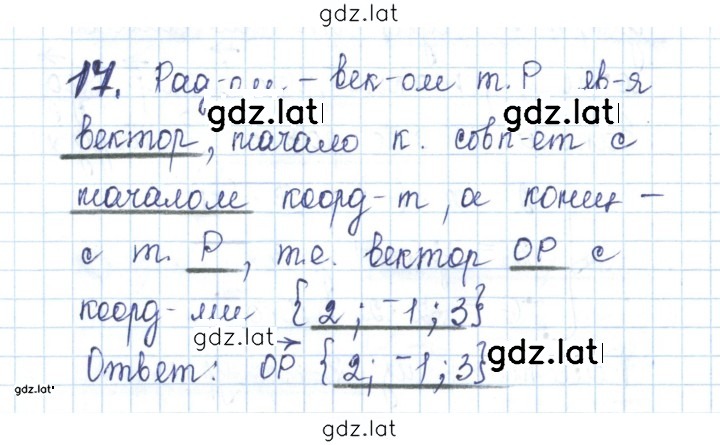 gdz.lat
17. Рад-
– век-ом т. P яв-я
gdz.lat gdz.lat
вектор, начало к. совп-ет с
началом коорд-т, а конец –
с т. P, т.е. вектор OP с
коорд-ми {2; -1; 3}
gdz.lat
Ответ: OP {2; -1; 3}
gdz.lat
gdz.lat
gdz.lat